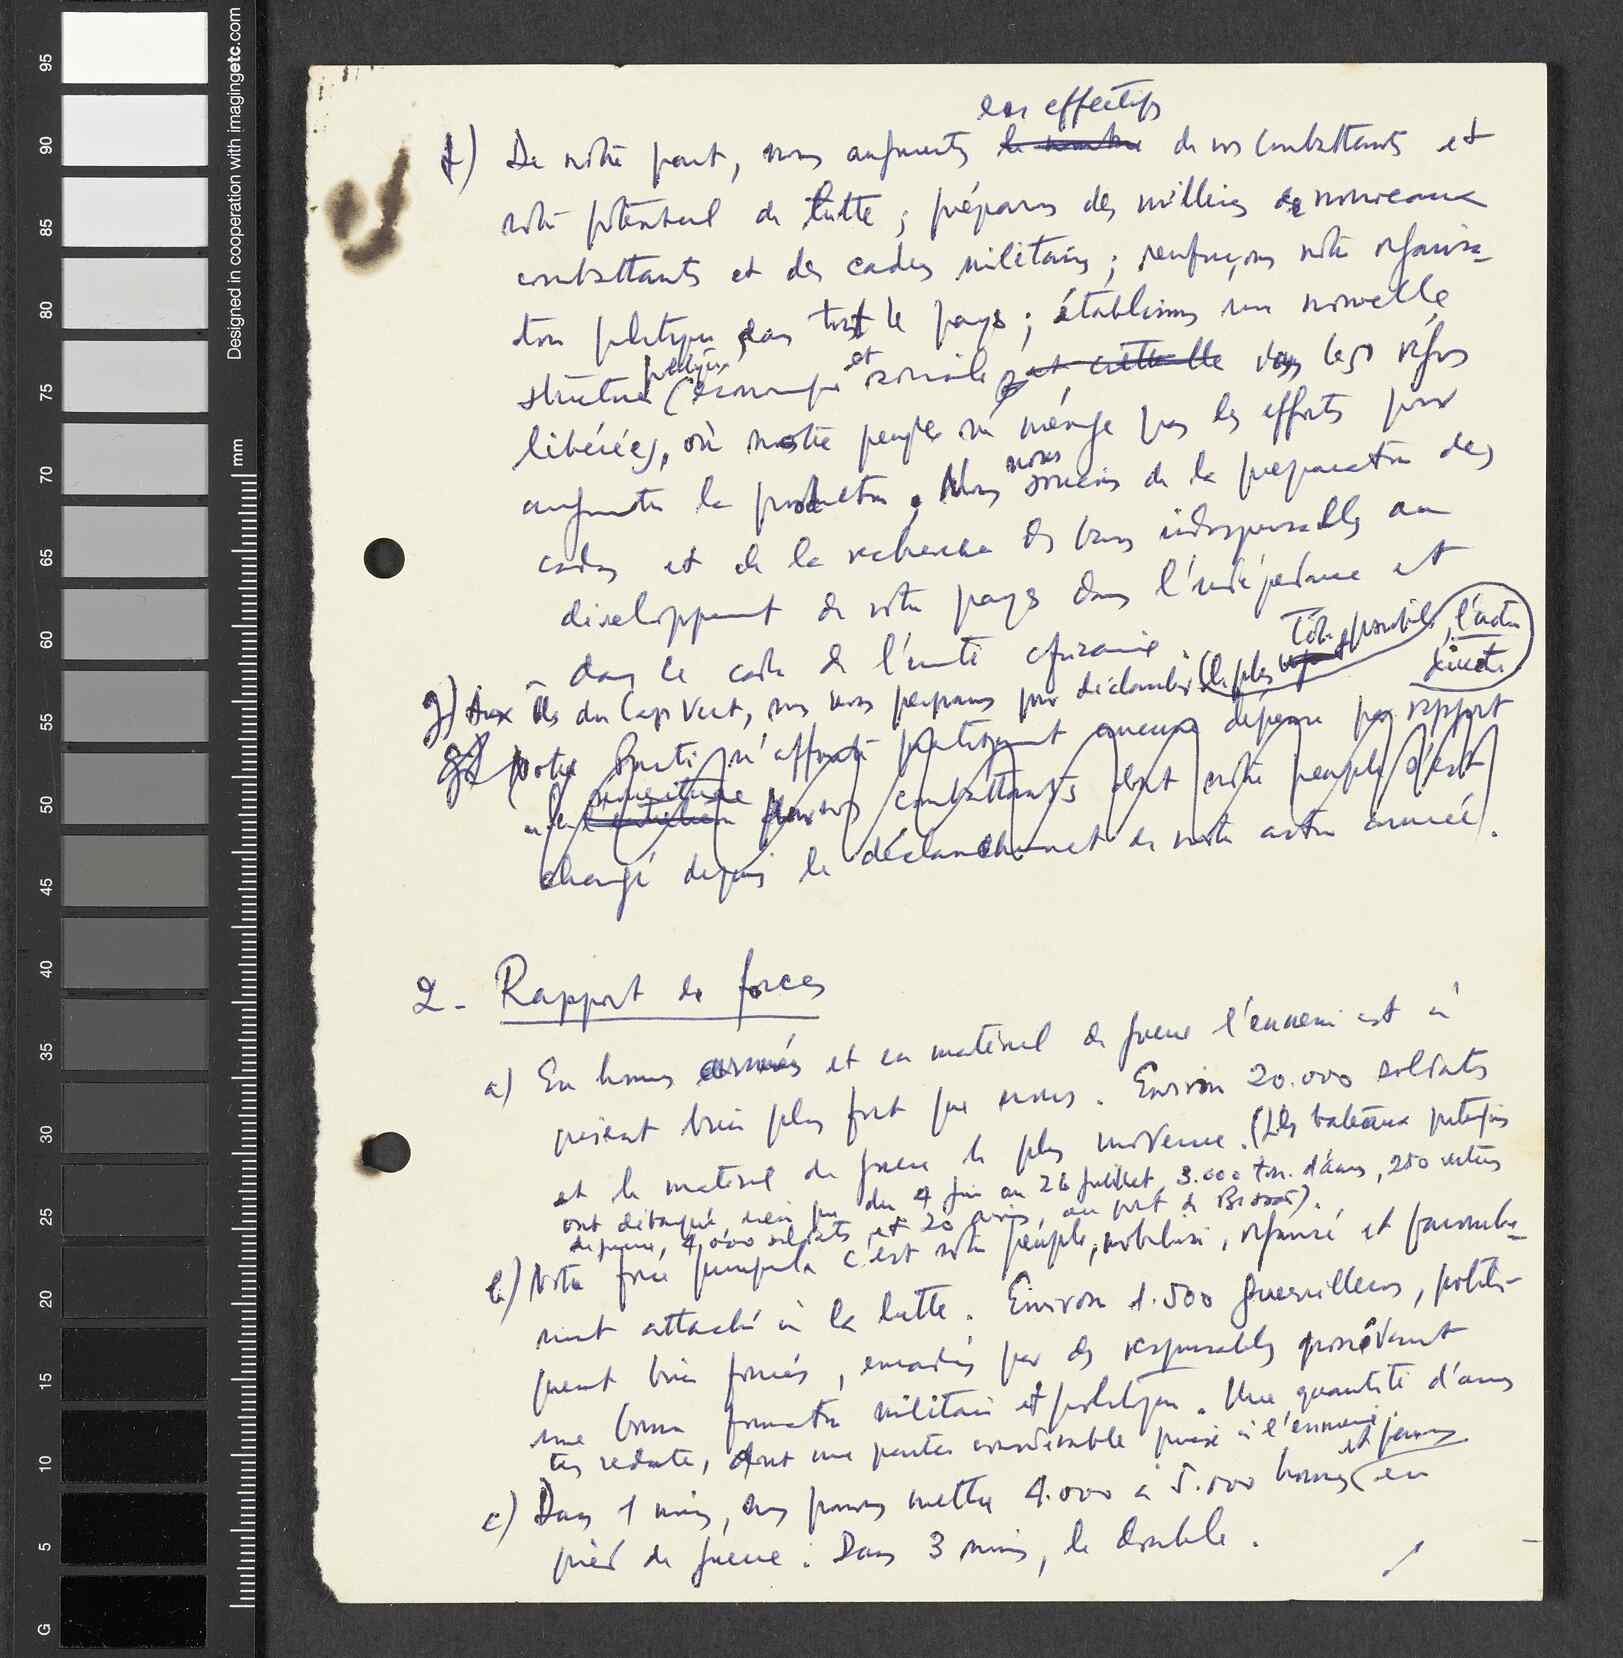 les effectifs
f) De notre part, nous augmentons le nombre de nos combattants et
notre potentiel de lutte ; préparons des milliers de nouveaux
combattants et des cadres militaires ; renforçons notre organisa-
tion politique dans tout le pays ; établissons une nouvelle
politique et
structure (économique sociale et culturelle dans les régions
libérées, où notre peuple ne ménage pas les efforts pour
nous
augmenter la production. Nous soucions de la préparation des
cadres et de la recherche des bases indispensables au
développement de notre pays dans l'indépendance et
dans le cadre de l'unité africaine.
tôt possible, l'action
directe
g) Aux Iles du Cap Vert, nous nous préparons pour déclencher le plus
g) Notre Parti n'affronte pratiquement aucune dépense par rapport
nourriture
à la pour nos combattants dont notre peuple s'est
chargé depuis le déclanchement de notre action armée.
2 - Rapport de forces
a) En hommes armés et en matériel de guerre l'ennemi est à
présent bien plus fort que nous. Environ 20.000 soldats
et le matériel de guerre le plus moderne. (Les bateaux portugais
ont débarqué, rien que du 4 juin au 26 juillet, 3.000 ton. d'armes, 250 voitures
de guerre, 4.000 soldats et 20 avions, au port de Bissao).
b) Notre force principale c'est notre peuple, mobilisé, organisé et
ment attaché à la lutte. Environ 1.500 guerrilleros, politi-
quement bien formés, encadrés par des responsables possédant
une bonne formation militaire et politique. Une quantité d'armes
très réduite, dont une partie considérable prise à l'ennemi.
et femmes
c) Dans 1 mois, nous pouvons mettre 4.000 à 5.000 hommes en
pied de guerre. Dans 3 mois, le double.
Designed in cooperation with imagingetc.com
mm
95
90
85
80
75
70
65
60
55
50
45
40
35
30
25
20
15
10
5
G